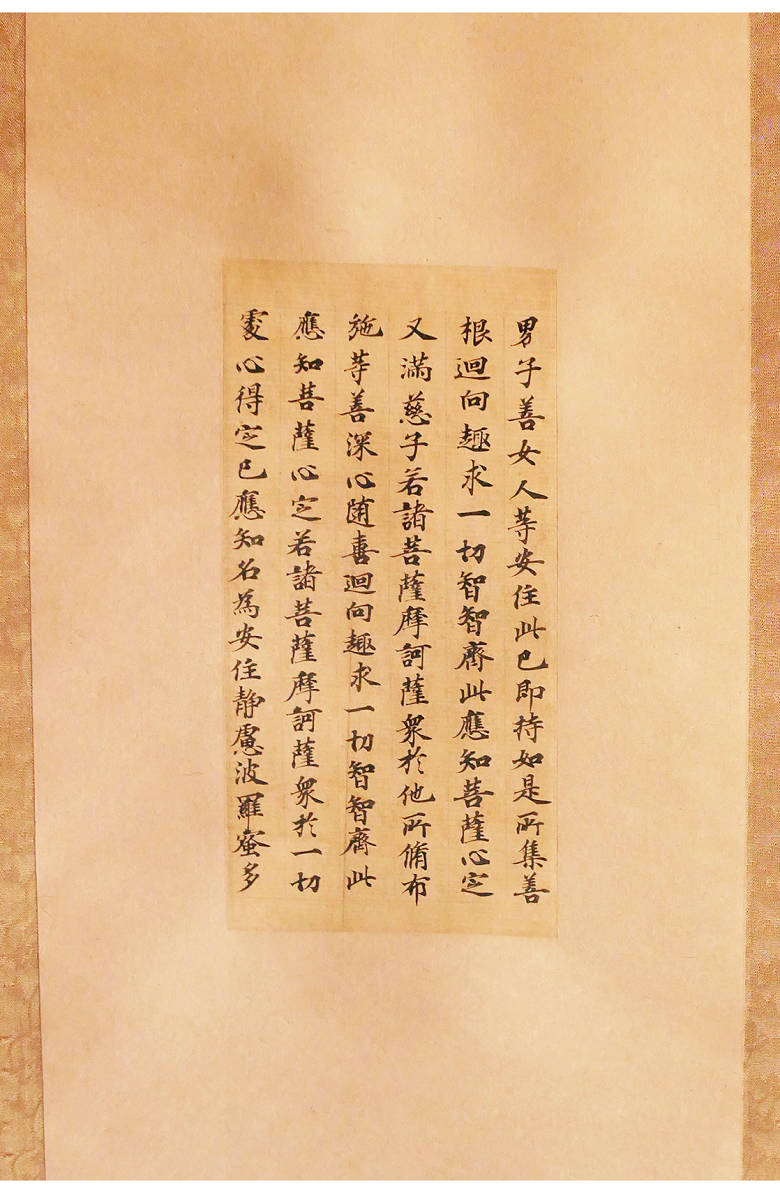 男子善女人等安住此已即持如是所集善
根迴向趣求一切智智齊此應知菩薩心定
又滿慈子若諸菩薩摩訶薩衆於他所脩布
施等善深心随喜迴向趣求一切智智齊此
應知菩薩心定若諸菩薩摩訶薩衆於一切
處心得定已應知名為安住静慮波羅蜜多